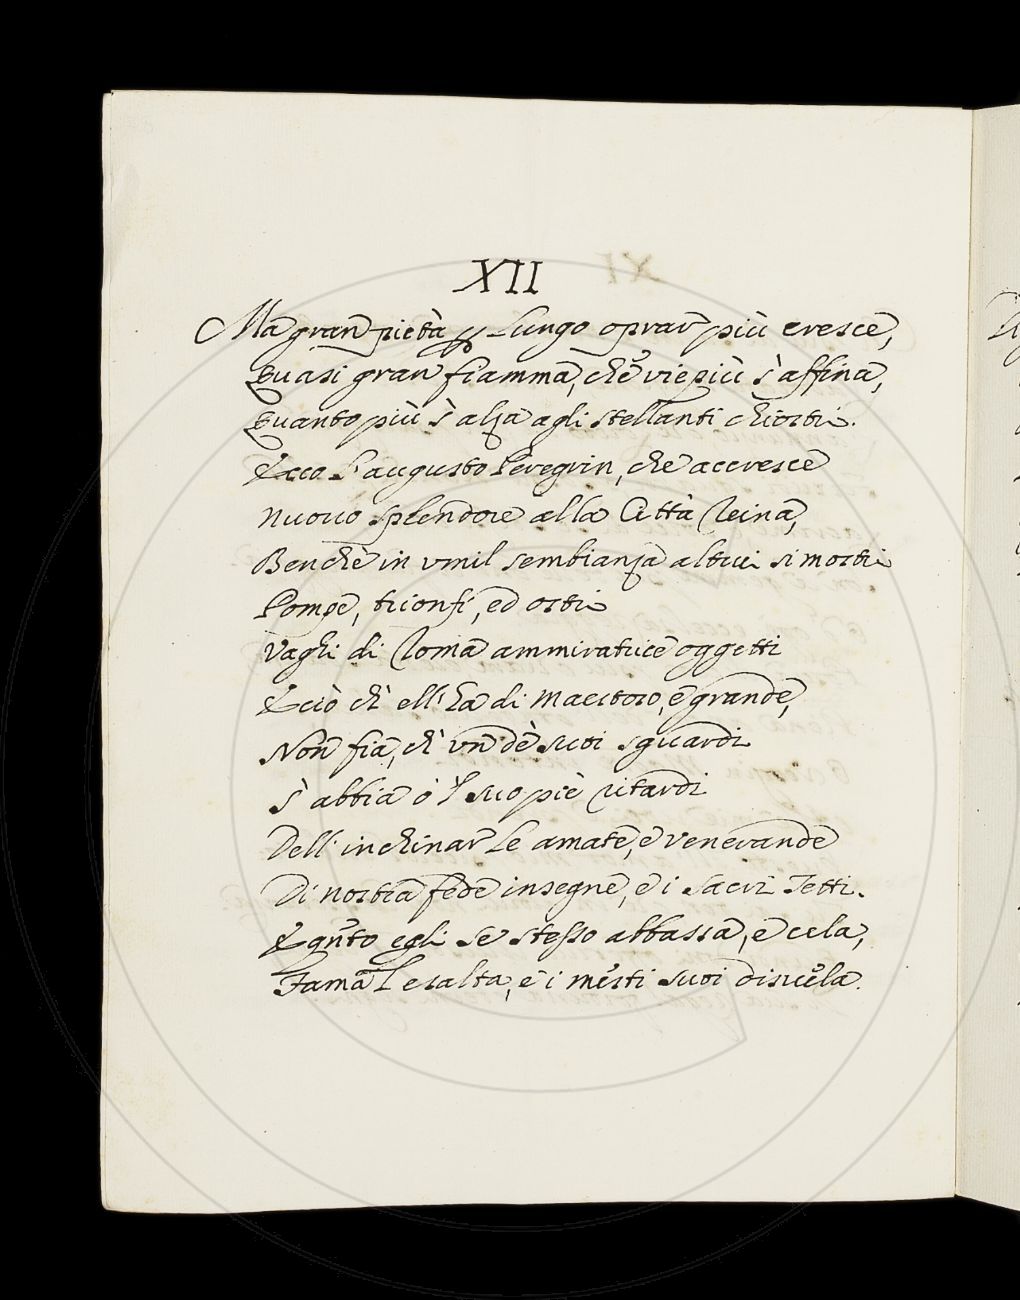 XII
Ma gran pietà per lungo oprar più cresce,
Quasi gran fiamma, che viepiù s'affina,
Quanto più s'alza agli stellanti chiostri.
Ecco l'augusto Peregrin, che accresce
Nuovo splendore alla Città Reina,
Benchè in umil sembianza altrui si mostri
Pompe, trionfi, ed ostri
Vaghi di Roma ammiratrice oggetti
E ciò ch'ell'ha di maestoso, e grande,
Non fia, ch'un de suoi sguardi
S'abbia o 'l suo piè ritardi
Dell'inchinar le amate, e venerande
Di nostra fede insegne, e i sacri Tetti.
E qnto egli se stesso abbassa, e cela,
Fama l'esalta, e i merti suoi disvela.